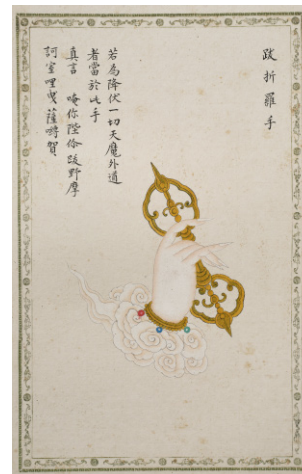 跋折羅手
若為降伏一切天魔外道
者當於此手
真言　唵你陛你跋野摩
訶室哩曳薩嚩賀